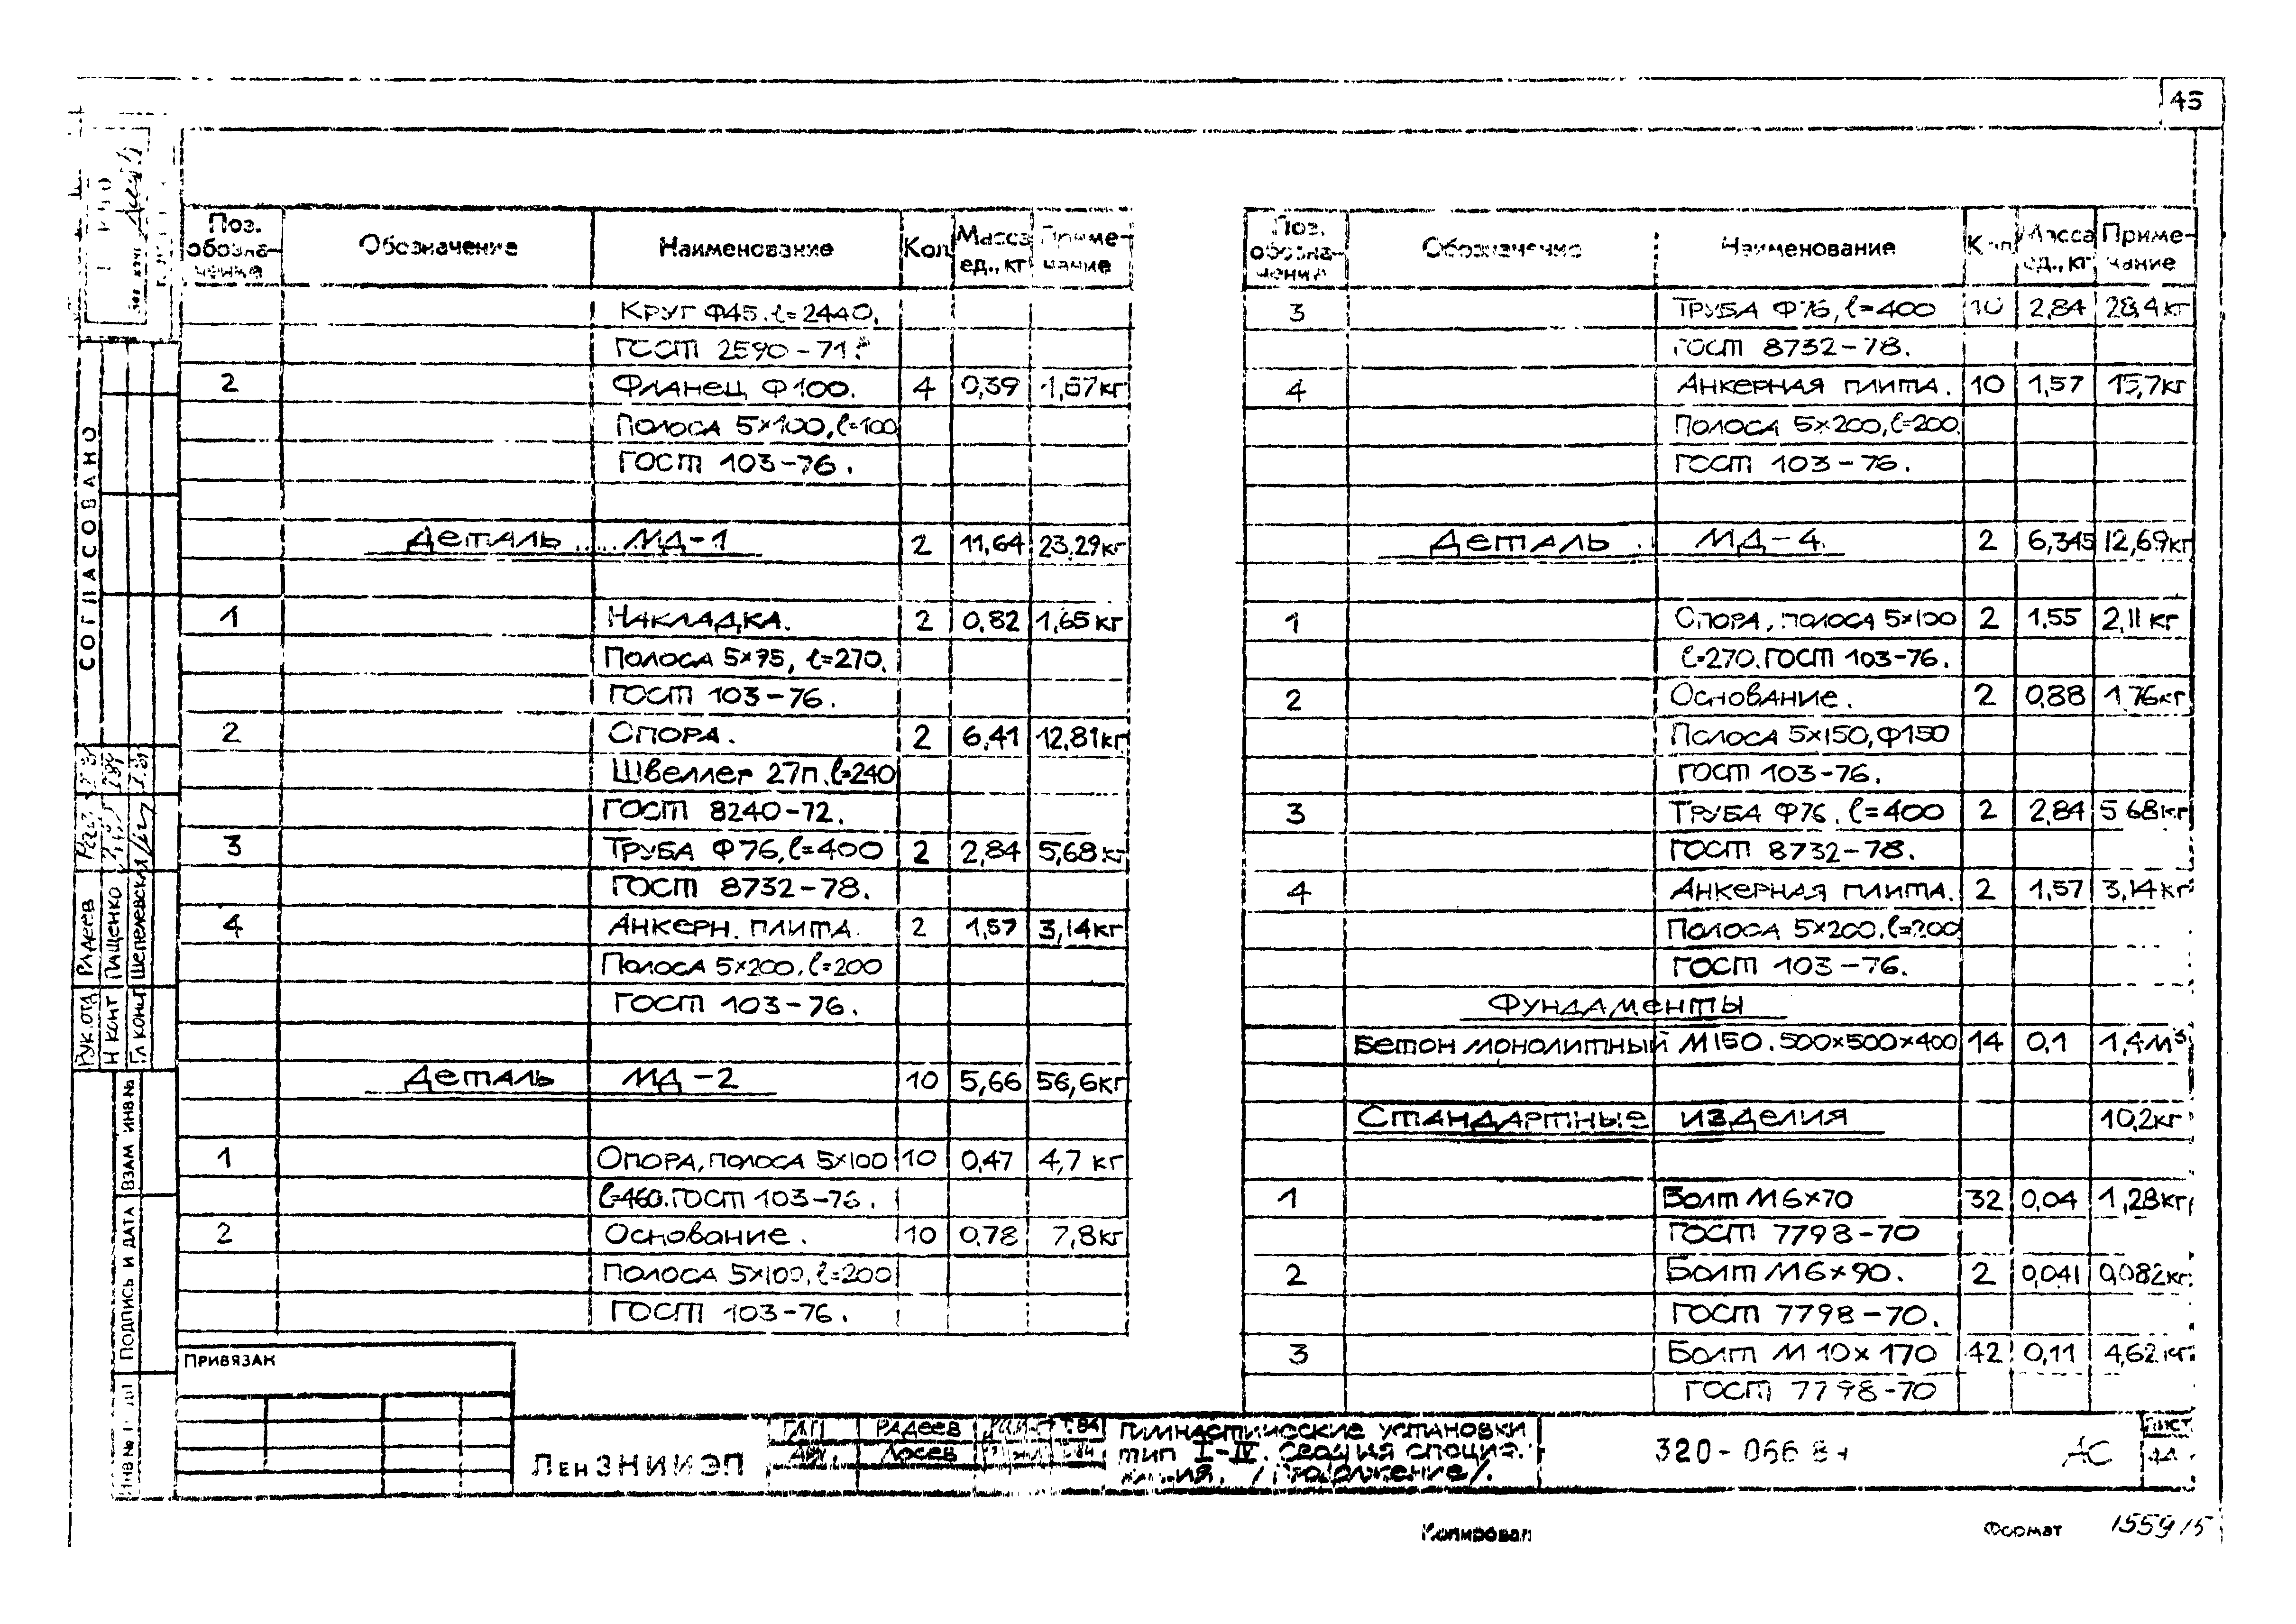 45
Поз. обозна-чение Обозначение Наименование Кол Масса ед., кг Приме-чание
Круг Ф45. ℓ=2440.
ГОСТ 2590-71.
2 Фланец Ф100. 4 0,39 1,57кг
Полоса 5×100, ℓ=100
ГОСТ 103-76.
Деталь МД-1 2 11,64 23,29кг
1 Накладка. 2 0,82 1,65кг
Полоса 5×75, ℓ=270.
ГОСТ 103-76.
2 Опора. 2 6,41 12,81кг
Швеллер 27п. ℓ=240
ГОСТ 8240-72.
3 Труба Ф76, ℓ=400 2 2,84 5,68кг
ГОСТ 8732-78.
4 Анкерн. плита. 2 1,57 3,14кг
Полоса 5×200. ℓ=200
ГОСТ 103-76.
Деталь МД-2 10 5,66 56,6кг
1 Опора, полоса 5×100 10 0,47 4,7 кг
ℓ=460. ГОСТ 103-76.
2 Основание. 10 0,78 7,8кг
Полоса 5×100, ℓ=200
ГОСТ 103-76.
Поз. обозна-чение Обозначение Наименование Кол Масса ед., кг Приме-чание
3 Труба Ф76, ℓ=400 10 2,84 28,4кг
ГОСТ 8732-78.
4 Анкерная плита. 10 1,57 15,7кг
Полоса 5×200, ℓ=200.
ГОСТ 103-76.
Деталь МД-4. 2 6,345 12,69кг
1 Опора, полоса 5×100 2 1,55 2,11 кг
ℓ=270. ГОСТ 103-76.
2 Основание. 2 0,88 1,76кг
Полоса 5×150, Ф150
ГОСТ 103-76.
3 Труба Ф76. ℓ=400 2 2,84 5,68кг
ГОСТ 8732-78.
4 Анкерная плита. 2 1,57 3,14кг
Полоса 5×200. ℓ=200
ГОСТ 103-76.
Фундаменты
Бетон монолитный М150. 500×500×400 14 0.1 1,4м³
Стандартные изделия 10,2кг
1 Болт М6×70 32 0,04 1,28кг
ГОСТ 7798-70
2 Болт М6×90. 2 0,041 0,082кг.
ГОСТ 7798-70.
3 Болт М10×170 42 0,11 4,62кг.
ГОСТ 7798-70
СОГЛАСОВАНО
Рук.отд Радеев
Н конт Пащенко
Гл конст Шепелевская
Взам инв №
Подпись и дата
Инв №
Привязан
ЛенЗНИИЭП
ГАП Радеев
Лосев
Гимнастические установки
тип I-IV. Сводная специфи-
кация. /Продолжение/.
320-066 84
АС
Лист
Копировал
Формат
1559/5